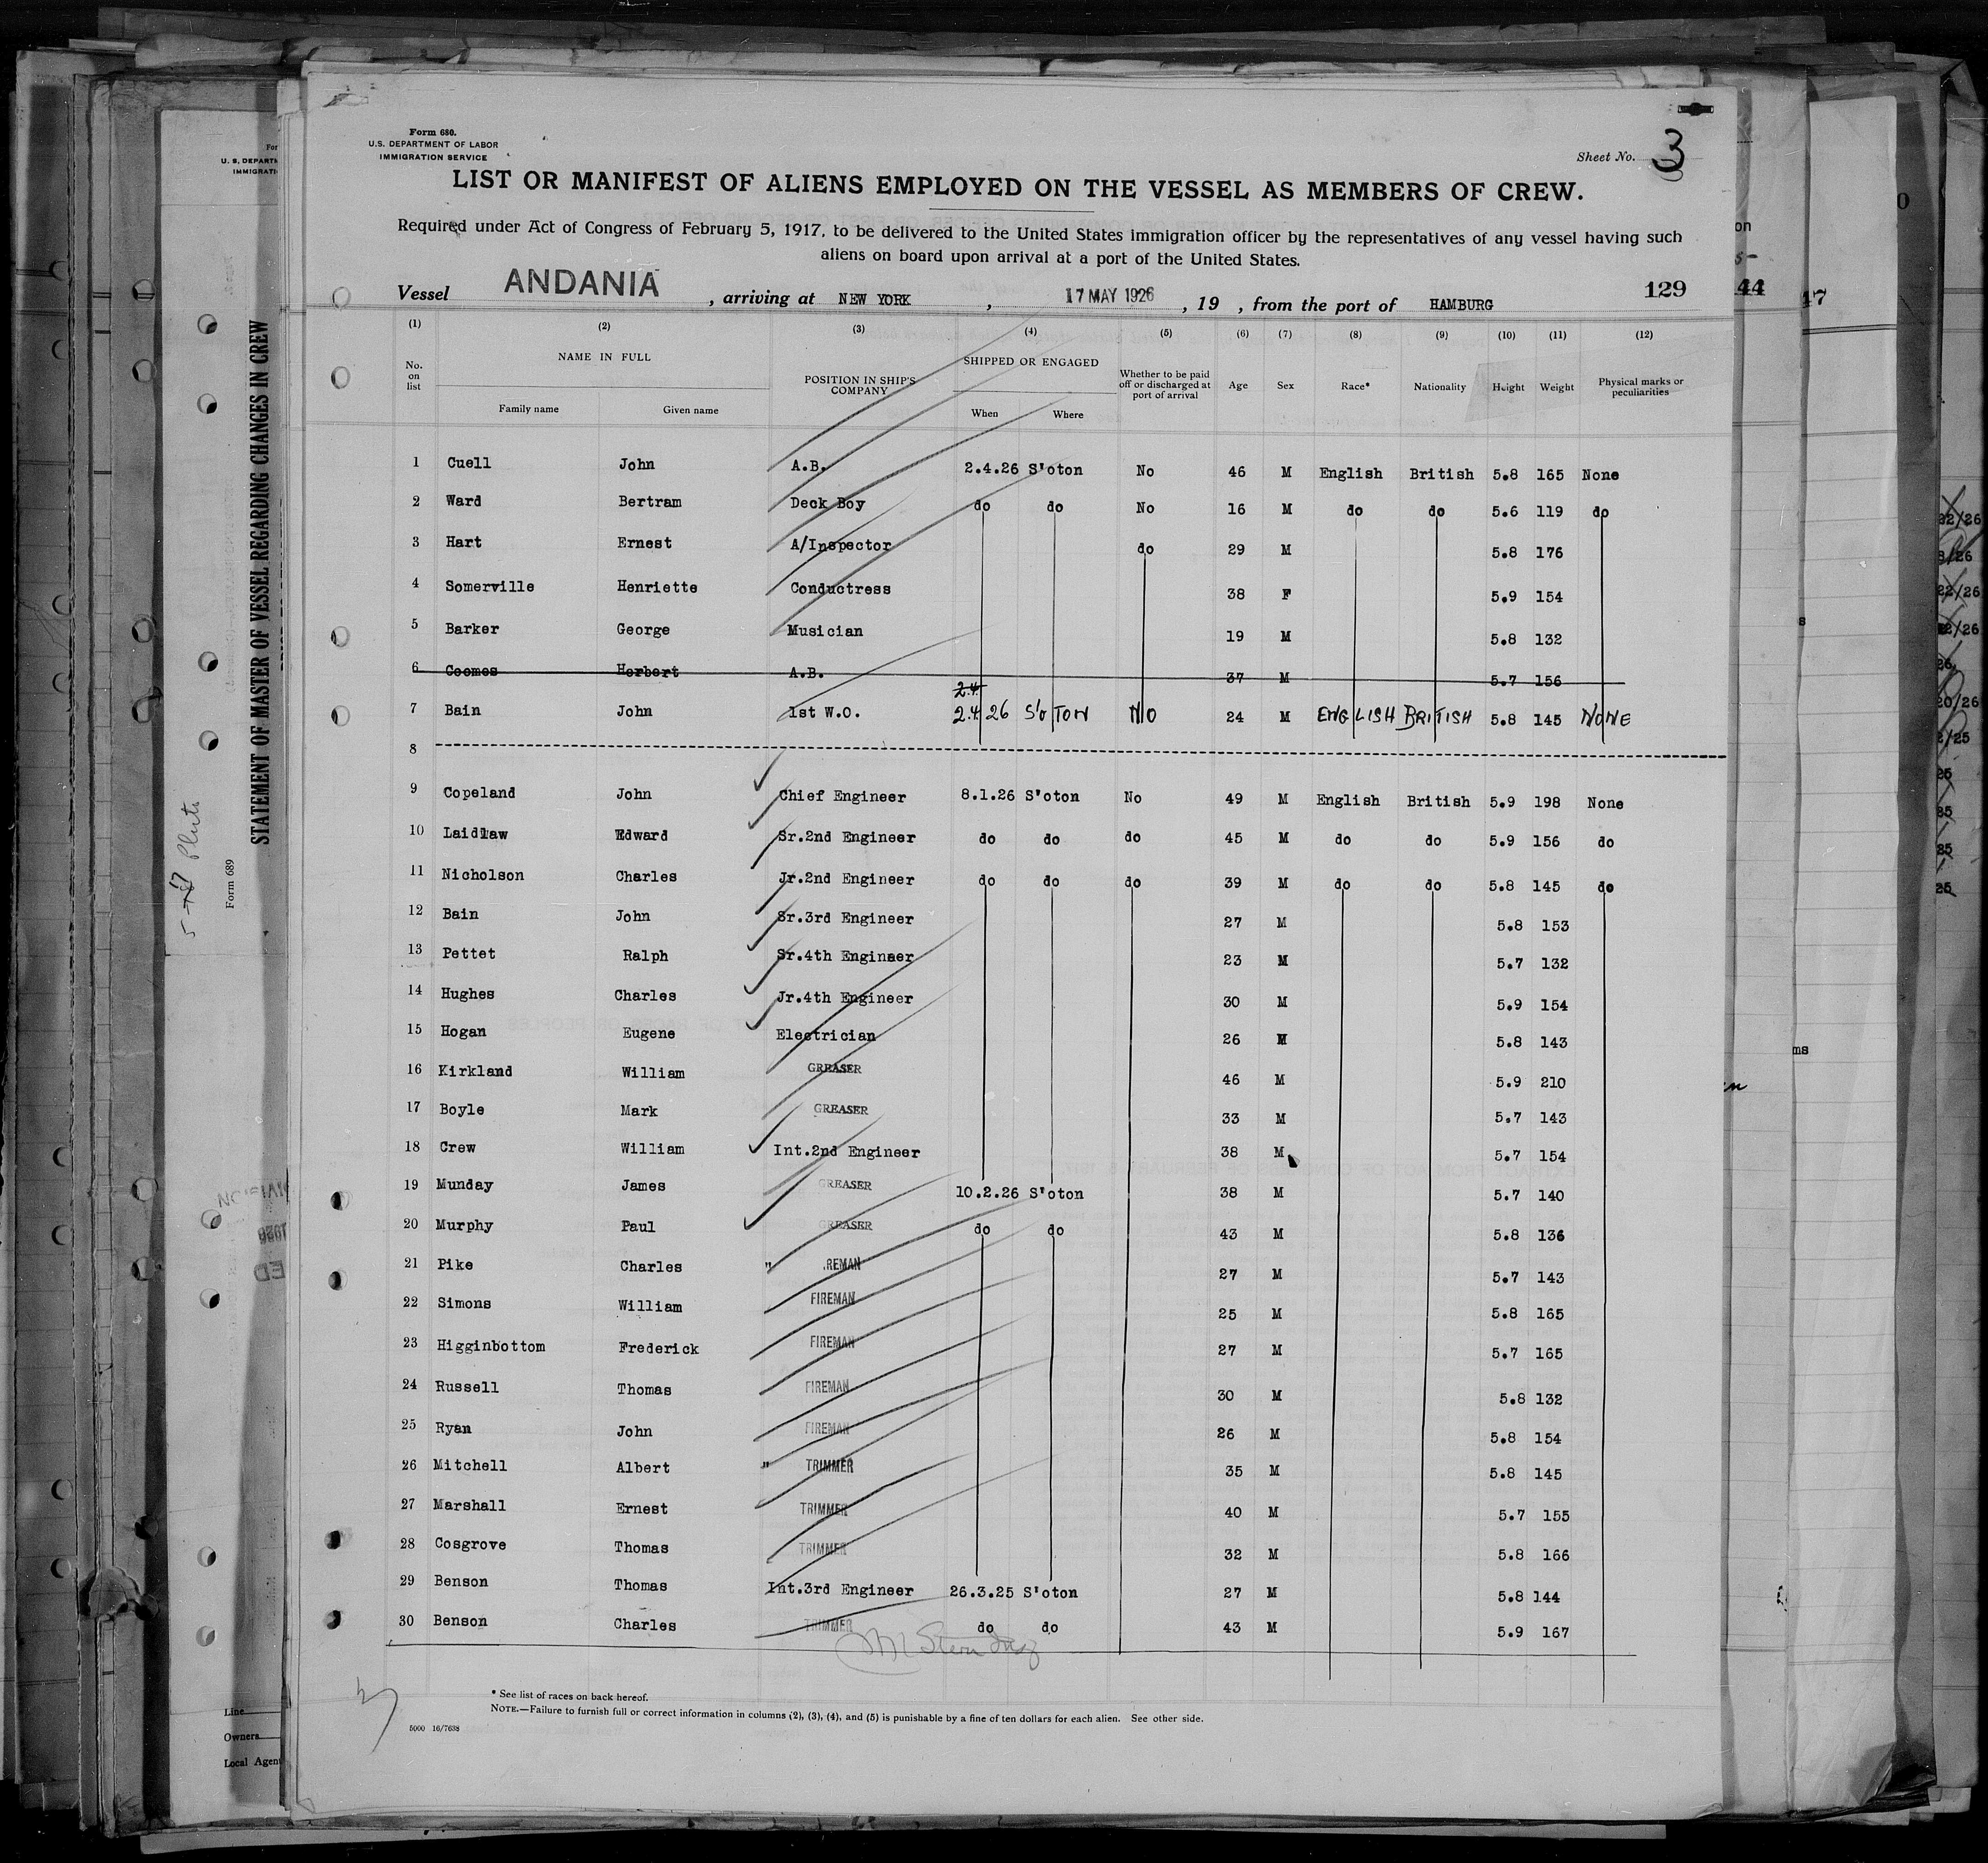 Form 680.
U.S. DEPARTMENT OF LABOR
IMMIGRATION SERVICE
Sheet No. 3
LIST OR MANIFEST OF ALIENS EMPLOYED ON THE VESSEL AS MEMBERS OF CREW.
Required under Act of Congress of February 5, 1917, to be delivered to the United States immigration officer by the representatives of any vessel having such
aliens on board upon arrival at a port of the United States.
Vessel ANDANIA, arriving at NEW YORK, 17 MAY 1926, 19 , from the port of HAMBURG 129
(1) (2) (3) (4) (5) (6) (7) (8) (9) (10) (11) (12)
No. on list NAME IN FULL POSITION IN SHIP'S COMPANY SHIPPED OR ENGAGED Whether to be paid off or discharged at port of arrival Age Sex Race* Nationality Height Weight Physical marks or peculiarities
Family name Given name When Where
1 Cuell John A.B. 2.4.26 S'oton No 46 M English British 5.8 165 None
2 Ward Bertram Deck Boy do do No 16 M do do 5.6 119 do
3 Hart Ernest A/Inspector do 29 M 5.8 176
4 Somerville Henriette Conductress 38 F 5.9 154
5 Barker George Musician 19 M 5.8 132
6 Coomes Herbert A.B. 37 M 5.7 156
2.4.
7 Bain John 1st W.O. 2.4.26 S'oTON NO 24 M ENGLISH BRITISH 5.8 145 NONE
8
9 Copeland John Chief Engineer 8.1.26 S'oton No 49 M English British 5.9 198 None
10 Laidlaw Edward Sr.2nd Engineer do do do 45 M do do 5.9 156 do
11 Nicholson Charles Jr.2nd Engineer do do do 39 M do do 5.8 145 do
12 Bain John Sr.3rd Engineer 27 M 5.8 153
13 Pettet Ralph Sr.4th Engineer 23 M 5.7 132
14 Hughes Charles Jr.4th Engineer 30 M 5.9 154
15 Hogan Eugene Electrician 26 M 5.8 143
16 Kirkland William GREASER 46 M 5.9 210
17 Boyle Mark GREASER 33 M 5.7 143
18 Crew William Int.2nd Engineer 38 M 5.7 154
19 Munday James GREASER 10.2.26 S'oton 38 M 5.7 140
20 Murphy Paul GREASER do do 43 M 5.8 136
21 Pike Charles " REMAN 27 M 5.7 143
22 Simons William FIREMAN 25 M 5.8 165
23 Higginbottom Frederick FIREMAN 27 M 5.7 165
24 Russell Thomas FIREMAN 30 M 5.8 132
25 Ryan John FIREMAN 26 M 5.8 154
26 Mitchell Albert " TRIMMER 35 M 5.8 145
27 Marshall Ernest TRIMMER 40 M 5.7 155
28 Cosgrove Thomas TRIMMER 32 M 5.8 166
29 Benson Thomas Int.3rd Engineer 26.3.25 S'oton 27 M 5.8 144
30 Benson Charles TRIMMER do do 43 M 5.9 167
* See list of races on back hereof.
NOTE.—Failure to furnish full or correct information in columns (2), (3), (4), and (5) is punishable by a fine of ten dollars for each alien. See other side.
5000 16/7638
STATEMENT OF MASTER OF VESSEL REGARDING CHANGES IN CREW
Form 689
U. S. DEPARTM
IMMIGRATI
Line
Owners
Local Agen
44
47